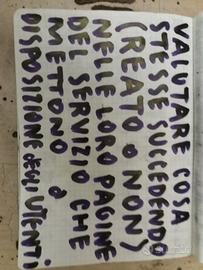 VALUTARE COSA
STESSE SUCCEDENDO
(REATO O NON)
NELLE LORO PAGINE
DEL SERVIZIO CHE
METTONO A
DISPOSIZIONE DEGLI UTENTI